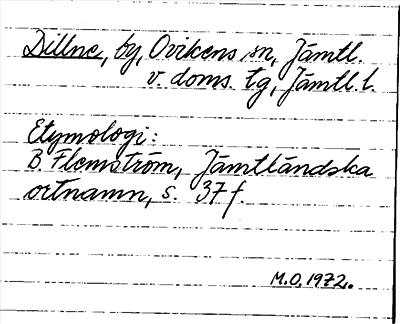 Dillne, by, Ovikens sn, Jämtl.
v. doms. tg, Jämtl. l.
Etymologi:
B. Flemström, Jämtländska
ortnamn, s. 37 f.
M.O. 1972.